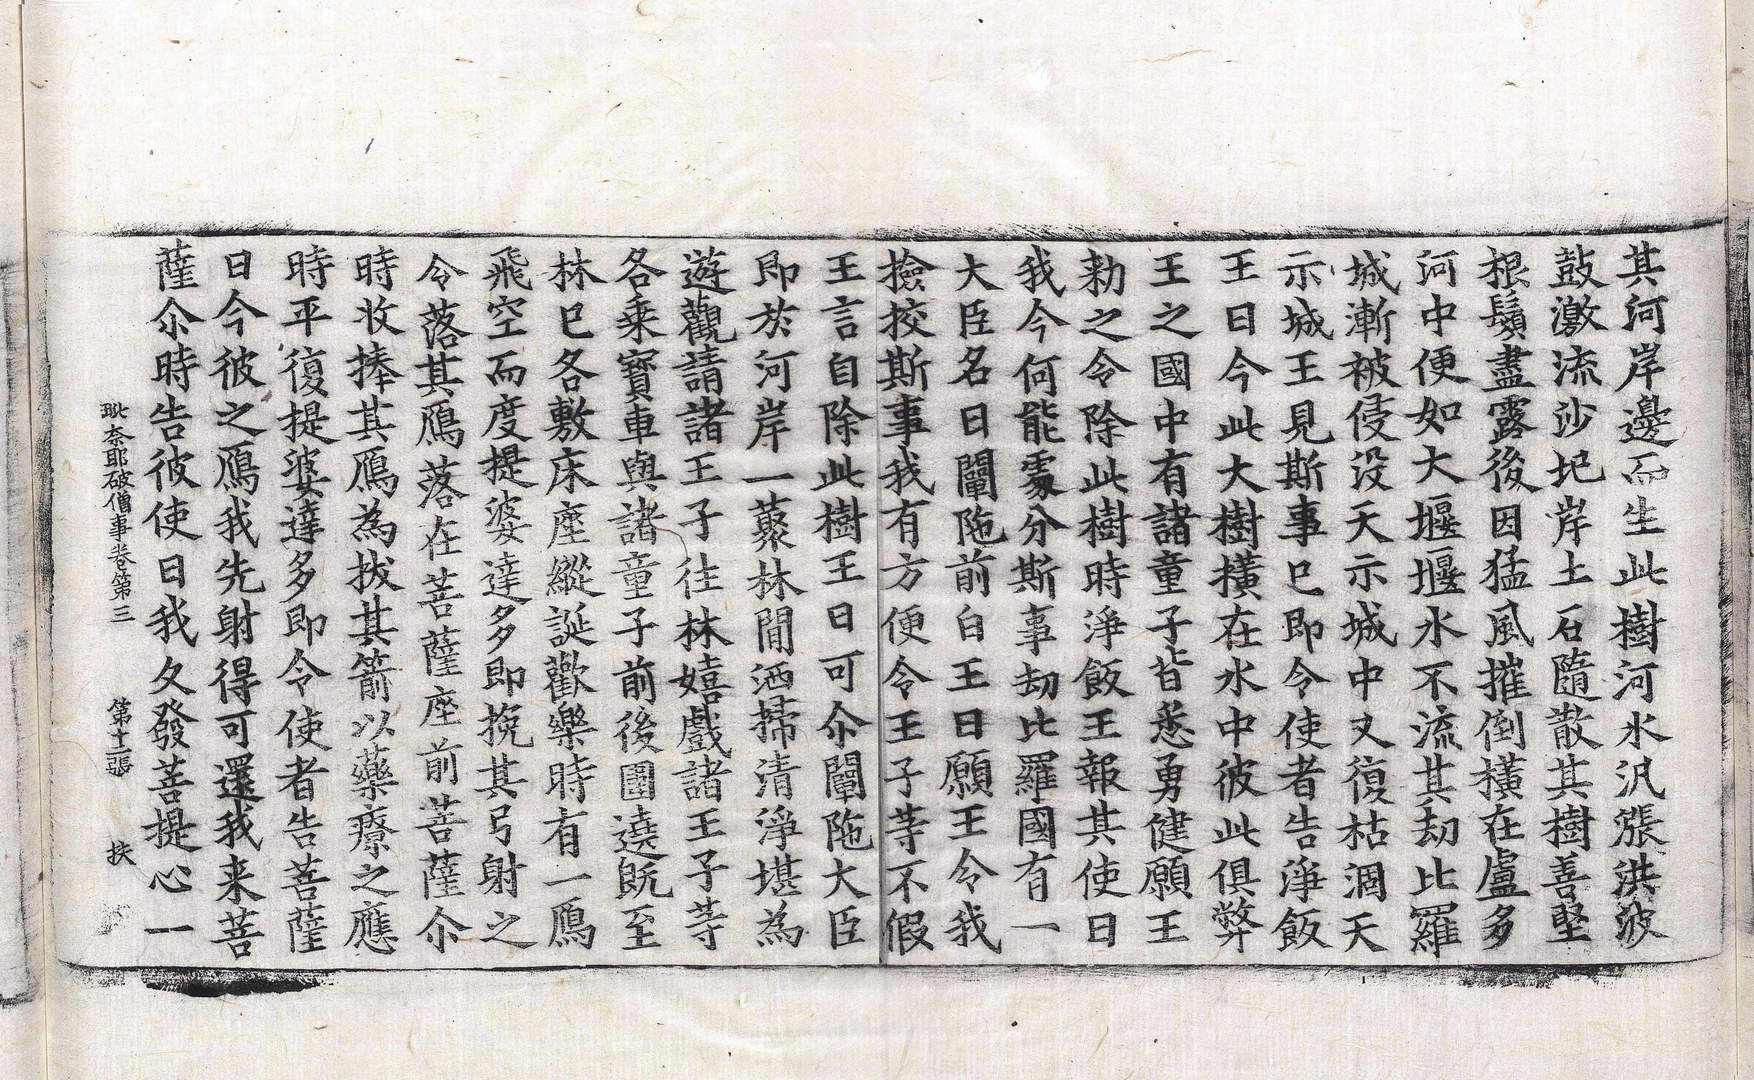 其河岸邊而生此樹河水汎漲洪波
鼓激流沙圯岸土石隨散其樹善堅
根鬚盡露後因猛風摧倒橫在盧多
河中便如大堰堰水不流其劫比羅
城漸被侵没天示城中又復枯涸天
示城王見斯事已即令使者告淨飯
王曰今此大樹橫在水中彼此俱弊
王之國中有諸童子皆悉勇健願王
勑之令除此樹時淨飯王報其使曰
我今何能處分斯事劫比羅國有一
大臣名曰闡陁前白王曰願王令我
撿挍斯事我有方便令王子等不假
王言自除此樹王曰可尒闡陁大臣
即於河岸一藂林閒洒掃清淨堪為
遊觀請諸王子往林嬉戲諸王子等
各乗寶車與諸童子前後圍遶旣至
林已各敷床座縱誕歡樂時有一鴈
飛空而度提婆達多即挽其弓射之
令落其鴈落在菩薩座前菩薩尒
時收捧其鴈為拔其箭以藥療之應
時平復提婆達多即令使者告菩薩
曰今彼之鴈我先射得可還我来菩
薩尒時告彼使曰我久發菩提心一
毗奈耶破僧事卷第三 第十二張 扶